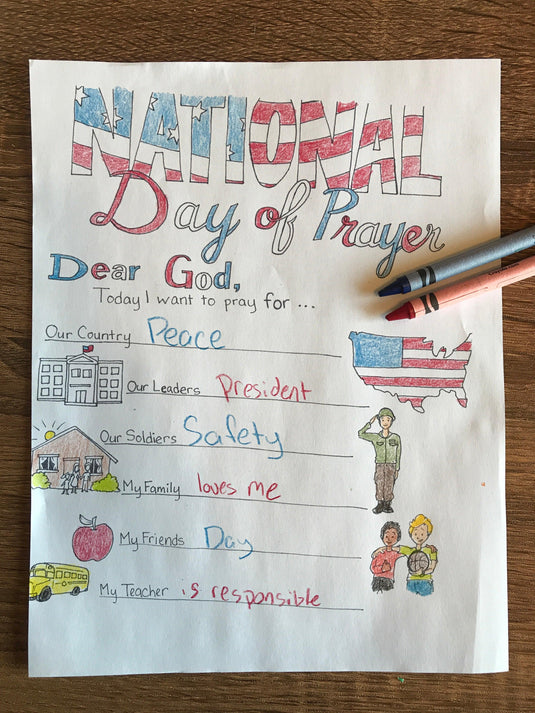 NATIONAL
Day of Prayer
Dear God,
Today I want to pray for ...
Our Country Peace
Our Leaders President
Our Soldiers Safety
My Family loves me
My Friends Day
My Teacher is responsible